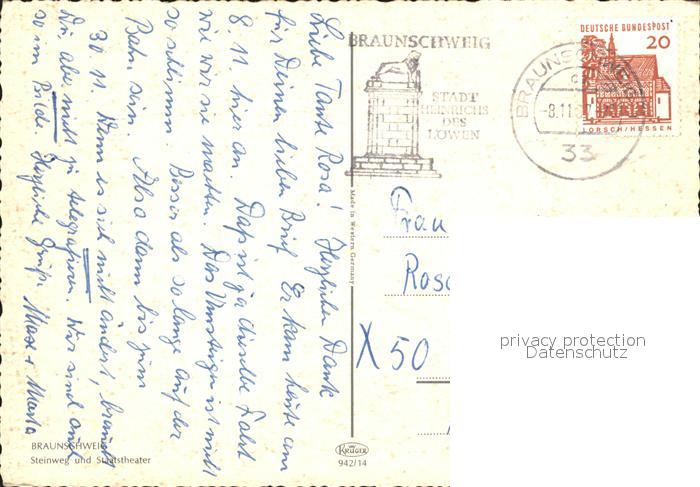 Liebe Tante Rosa! Herzlichen Dank
für Deinen lieben Brief. Er kam heute am
8.11. hier an. Das ist ja dieselbe Fahrt
wie wir sie machten. Das Umsteigen ist nicht
so schlimm. Besser als so lange auf der
Bahn sein. Also dann bis zum
30.11. Wenn es sich nicht ändert, brauchst
Du aber nicht zu telegrafieren. Wir sind auch
so im Bilde. Herzliche Grüße Max + Marta
BRAUNSCHWEIG
Steinweg und Staatstheater
Made in Western Germany
KRÜGER
942/14
BRAUNSCHWEIG
STADT
HEINRICHS
DES
LÖWEN
BRAUNSCHWEIG
-8.11.
33
DEUTSCHE BUNDESPOST
20
LORSCH/HESSEN
Frau
X 50
privacy protection
Datenschutz